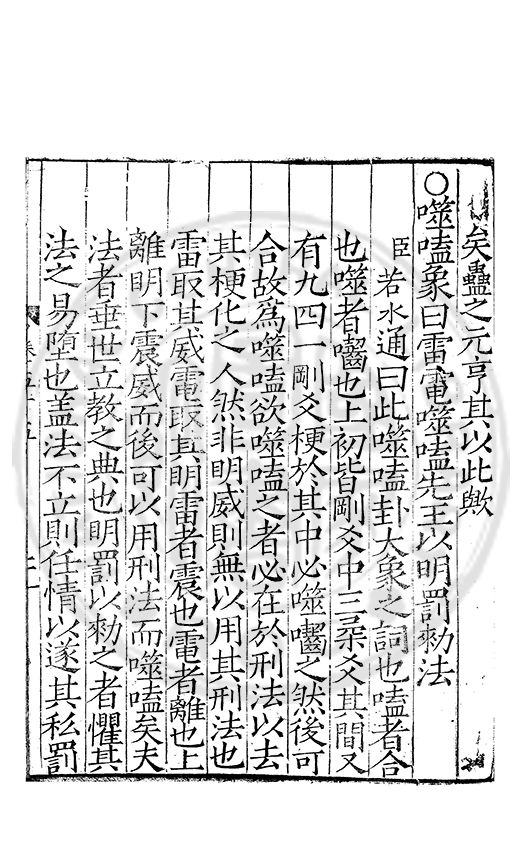 矣蠱之元亨其以此歟
○噬嗑象曰雷電噬嗑先王以明罰勑法
臣若水通曰此噬嗑卦大象之詞也嗑者合
也噬者齧也上初皆剛爻中三柔爻其間又
有九四一剛爻梗於其中必噬齧之然後可
合故爲噬嗑欲噬嗑之者必在於刑法以去
其梗化之人然非明威則無以用其刑法也
雷取其威電取其明雷者震也電者離也上
離明下震威而後可以用刑法而噬嗑矣夫
法者垂世立教之典也明罰以勑之者懼其
法之易墮也盖法不立則任情以遂其私罰